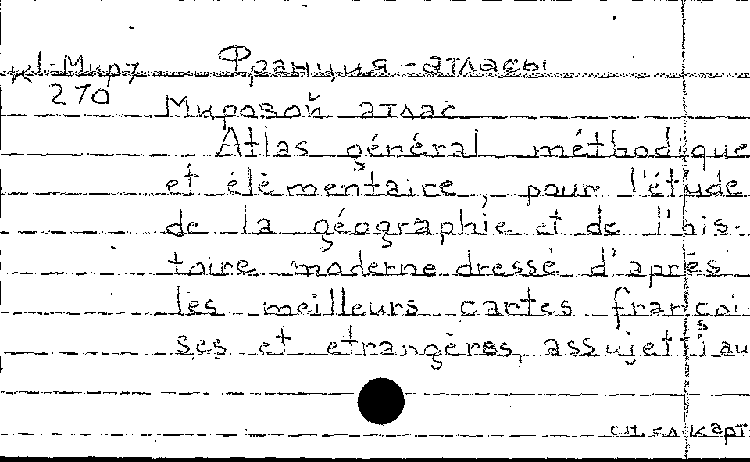 К1-Мир7 Франция-атласы
270
Мировой атлас
Atlas général méthodique
et élémentaire, pour l'étude
de la géographie et de l'his-
toire moderne dressé d'après
les meilleurs cartes françoi
ses et etrangères, assujetti au
см. сл. карт